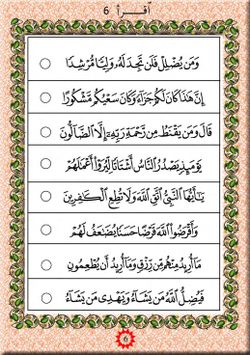 أقرأ 6
وَمَن يُضْلِلْ فَلَن تَجِدَ لَهُۥ وَلِيًّا مُّرْشِدًا
إِنَّ هَٰذَا كَانَ لَكُمْ جَزَآءً وَكَانَ سَعْيُكُم مَّشْكُورًا
قَالَ وَمَن يَقْنَطُ مِن رَّحْمَةِ رَبِّهِۦٓ إِلَّا ٱلضَّآلُّونَ
يَوْمَئِذٍ يَصْدُرُ ٱلنَّاسُ أَشْتَاتًا لِّيُرَوْا۟ أَعْمَٰلَهُمْ
يَٰٓأَيُّهَا ٱلنَّبِىُّ ٱتَّقِ ٱللَّهَ وَلَا تُطِعِ ٱلْكَٰفِرِينَ
وَأَقْرَضُوا۟ ٱللَّهَ قَرْضًا حَسَنًا يُضَٰعَفُ لَهُمْ
مَآ أُرِيدُ مِنْهُم مِّن رِّزْقٍ وَمَآ أُرِيدُ أَن يُطْعِمُونِ
فَيُضِلُّ ٱللَّهُ مَن يَشَآءُ وَيَهْدِى مَن يَشَآءُ
6